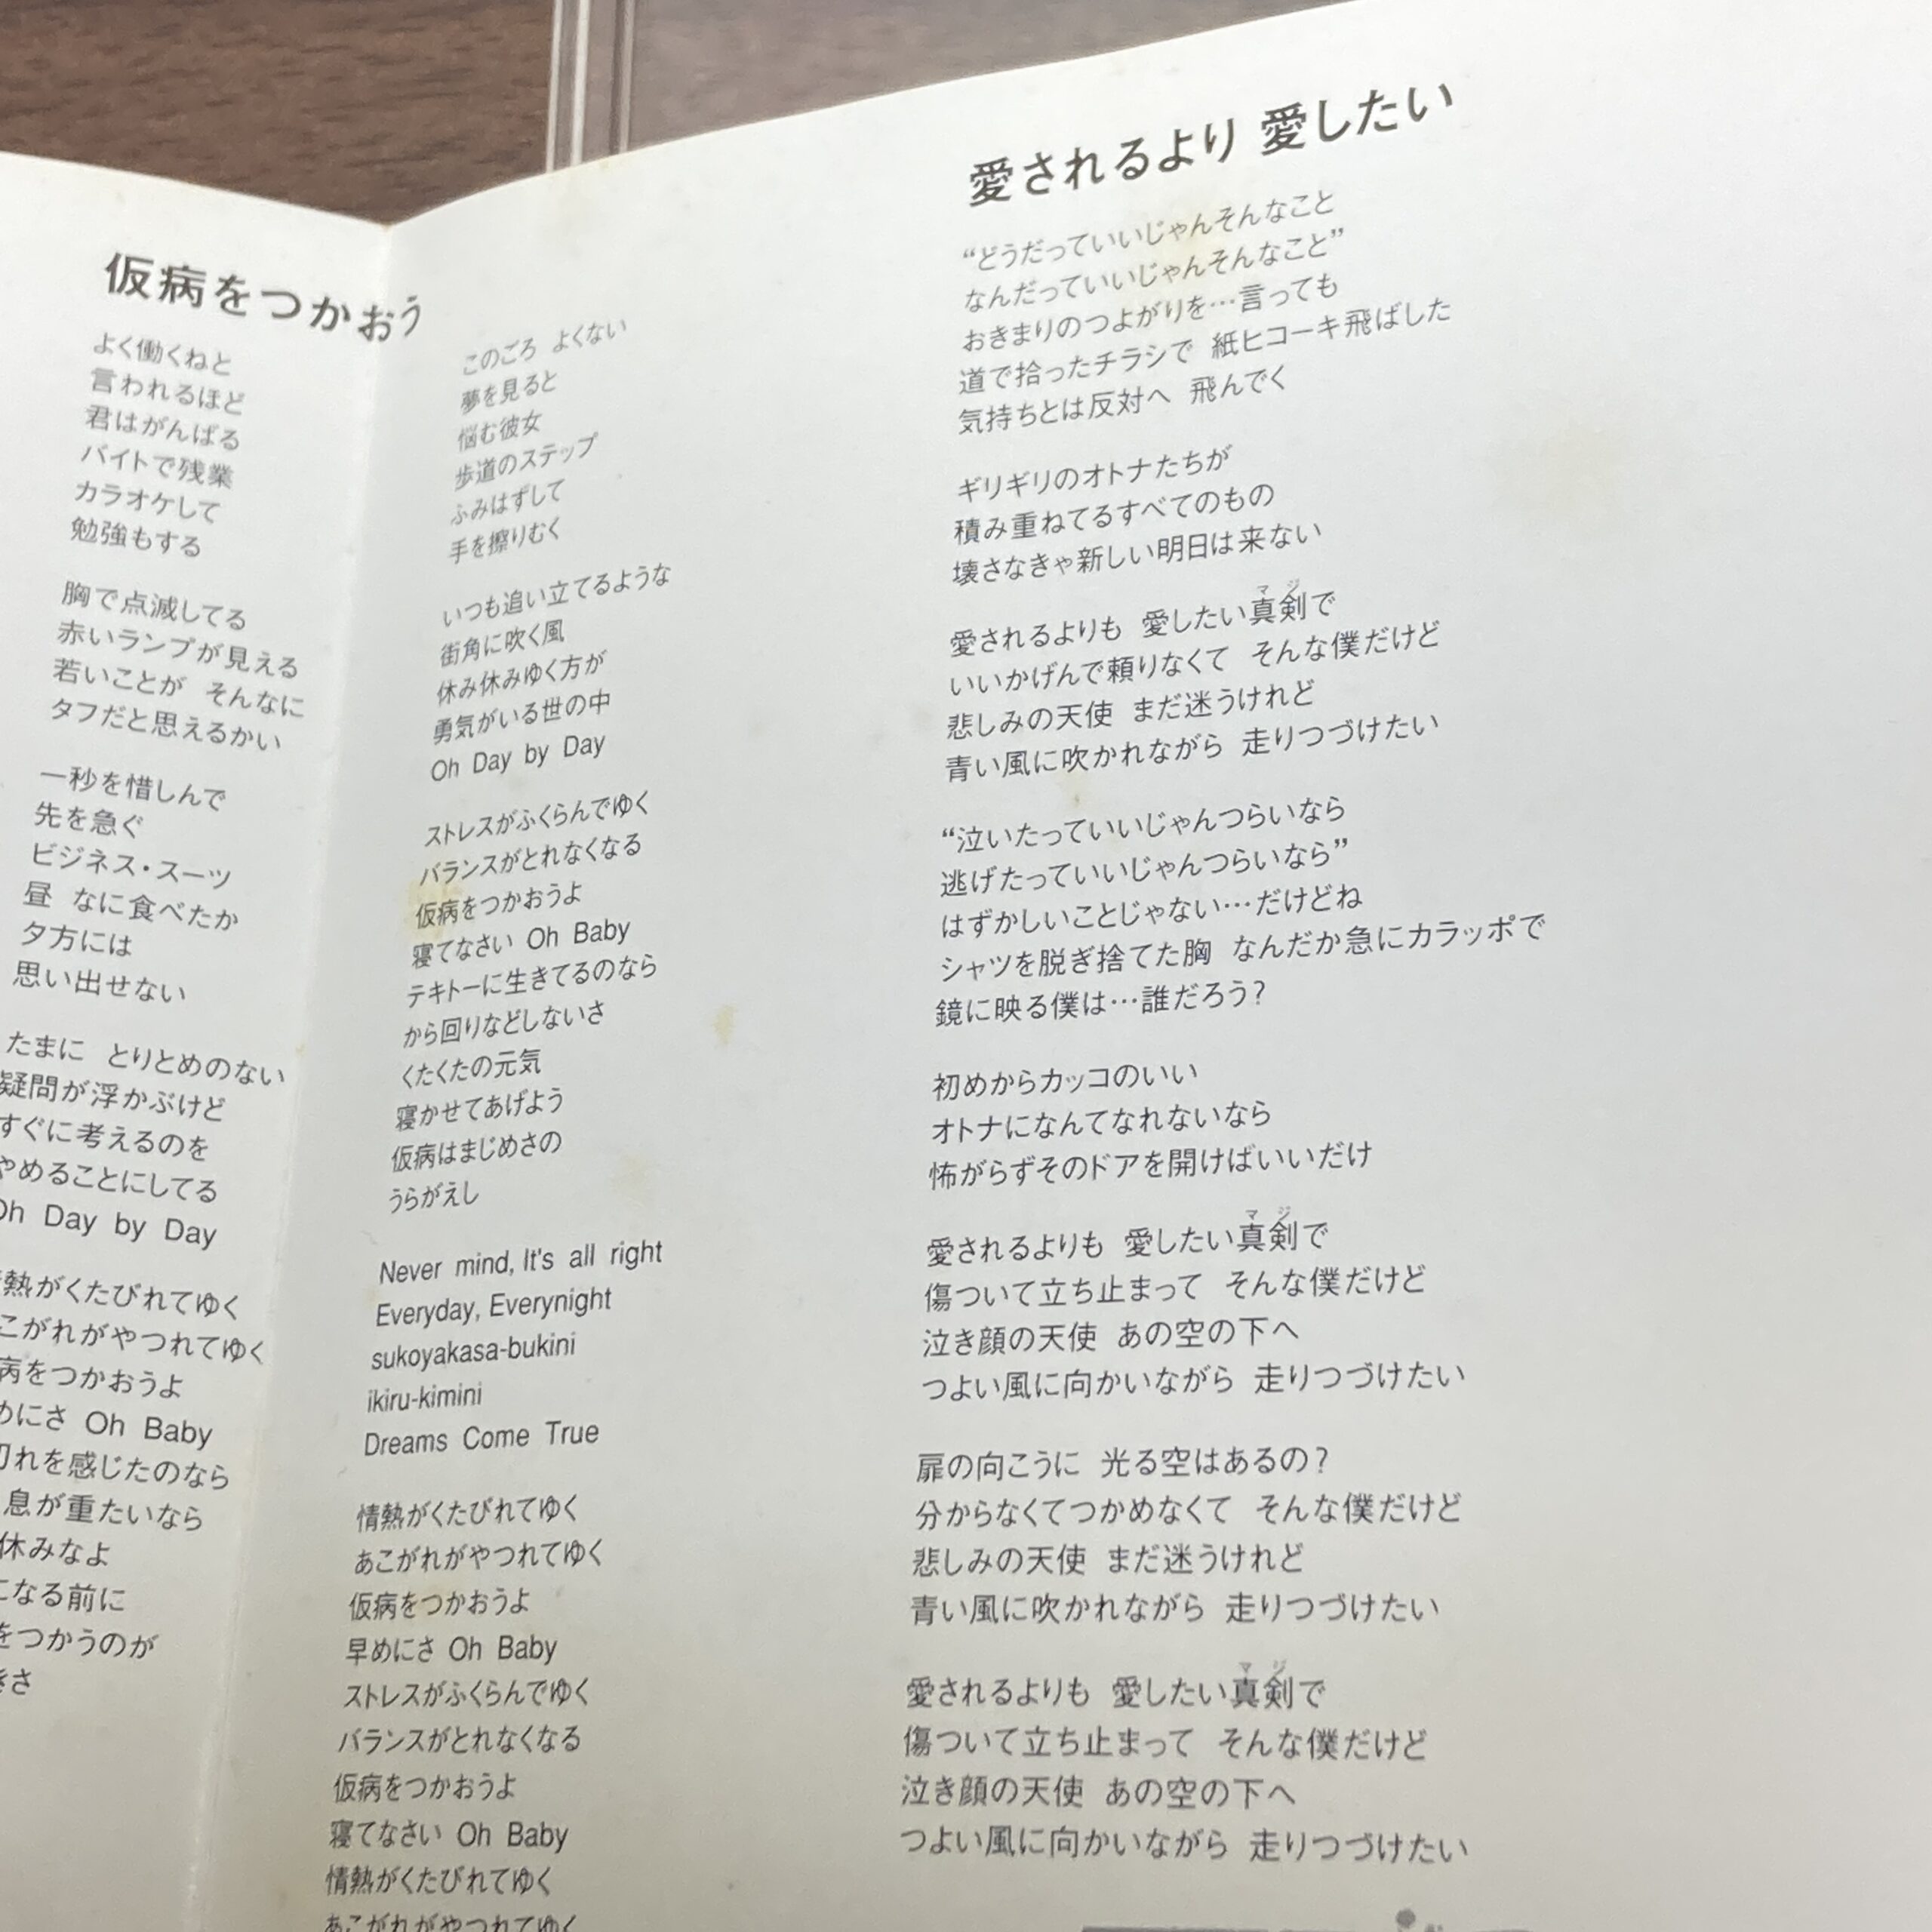 仮病をつかおう
よく働くねと
言われるほど
君はがんばる
バイトで残業
カラオケして
勉強もする
胸で点滅してる
赤いランプが見える
若いことが そんなに
タフだと思えるかい
一秒を惜しんで
先を急ぐ
ビジネス・スーツ
昼 なに食べたか
夕方には
思い出せない
たまに とりとめのない
疑問が浮かぶけど
すぐに考えるのを
やめることにしてる
Oh Day by Day
熱がくたびれてゆく
こがれがやつれてゆく
病をつかおうよ
めにさ Oh Baby
切れを感じたのなら
息が重たいなら
休みなよ
になる前に
をつかうのが
きさ
このごろ よくない
夢を見ると
悩む彼女
歩道のステップ
ふみはずして
手を擦りむく
いつも追い立てるような
街角に吹く風
休み休みゆく方が
勇気がいる世の中
Oh Day by Day
ストレスがふくらんでゆく
バランスがとれなくなる
仮病をつかおうよ
寝てなさい Oh Baby
テキトーに生きてるのなら
から回りなどしないさ
くたくたの元気
寝かせてあげよう
仮病はまじめさの
うらがえし
Never mind, It's all right
Everyday, Everynight
sukoyakasa-bukini
ikiru-kimini
Dreams Come True
情熱がくたびれてゆく
あこがれがやつれてゆく
仮病をつかおうよ
早めにさ Oh Baby
ストレスがふくらんでゆく
バランスがとれなくなる
仮病をつかおうよ
寝てなさい Oh Baby
情熱がくたびれてゆく
あこがれがやつれてゆく
愛されるより 愛したい
“どうだっていいじゃんそんなこと
なんだっていいじゃんそんなこと”
おきまりのつよがりを…言っても
道で拾ったチラシで 紙ヒコーキ飛ばした
気持ちとは反対へ 飛んでく
ギリギリのオトナたちが
積み重ねてるすべてのもの
壊さなきゃ新しい明日は来ない
マジ
愛されるよりも 愛したい真剣で
いいかげんで頼りなくて そんな僕だけど
悲しみの天使 まだ迷うけれど
青い風に吹かれながら 走りつづけたい
“泣いたっていいじゃんつらいなら
逃げたっていいじゃんつらいなら”
はずかしいことじゃない…だけどね
シャツを脱ぎ捨てた胸 なんだか急にカラッポで
鏡に映る僕は…誰だろう?
初めからカッコのいい
オトナになんてなれないなら
怖がらずそのドアを開けばいいだけ
マジ
愛されるよりも 愛したい真剣で
傷ついて立ち止まって そんな僕だけど
泣き顔の天使 あの空の下へ
つよい風に向かいながら 走りつづけたい
扉の向こうに 光る空はあるの?
分からなくてつかめなくて そんな僕だけど
悲しみの天使 まだ迷うけれど
青い風に吹かれながら 走りつづけたい
マジ
愛されるよりも 愛したい真剣で
傷ついて立ち止まって そんな僕だけど
泣き顔の天使 あの空の下へ
つよい風に向かいながら 走りつづけたい